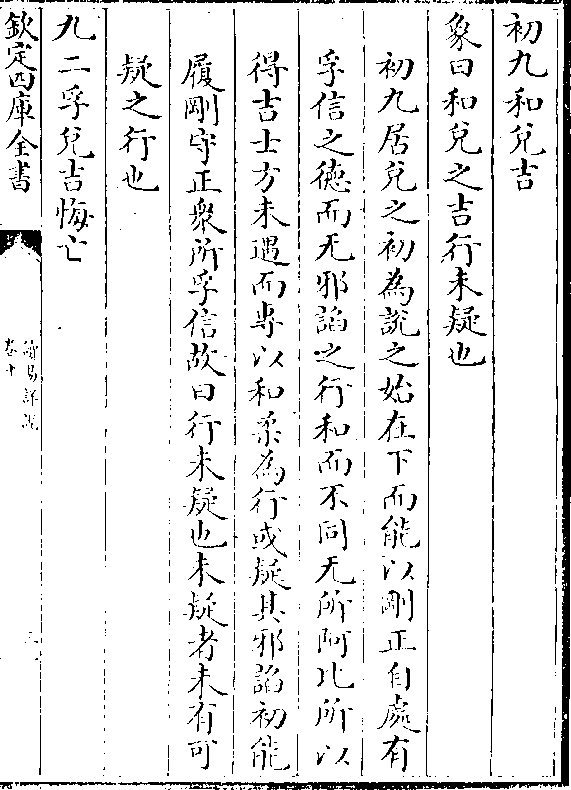 初九和兌吉
象曰和兌之吉行未疑也
初九居兌之初為說之始在下而能以剛正自處有
孚信之德而无邪諂之行和而不同无所阿比所以
得吉士方未遇而専以和柔為行或疑其邪諂初能
履剛守正衆所孚信故曰行未疑也未疑者未有可
疑之行也
九二孚兌吉悔亡
欽定四庫全書
讀易詳説
卷十